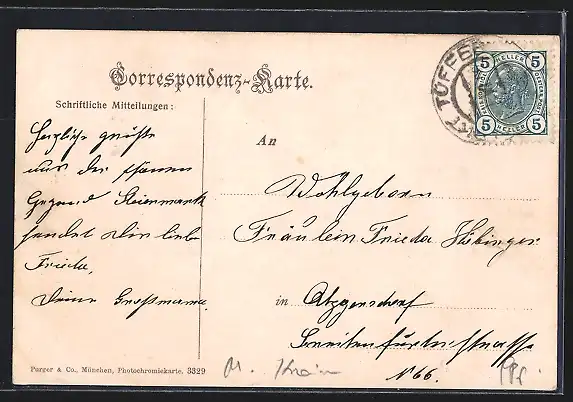 TÜFFER
5 HELLER 5
5 HELLER 5
Correspondenz-Karte.
Schriftliche Mitteilungen:
An
Herzliche Grüße
aus der schönen
Gegend Steiermark
sendet Dir liebe
Frieda,
Deine Großmama.
Wohlgeboren
Fräulein Frieda
in Atzgersdorf
Breitenfurterstrasse
No 66.
Purger & Co., München, Photochromiekarte. 3329